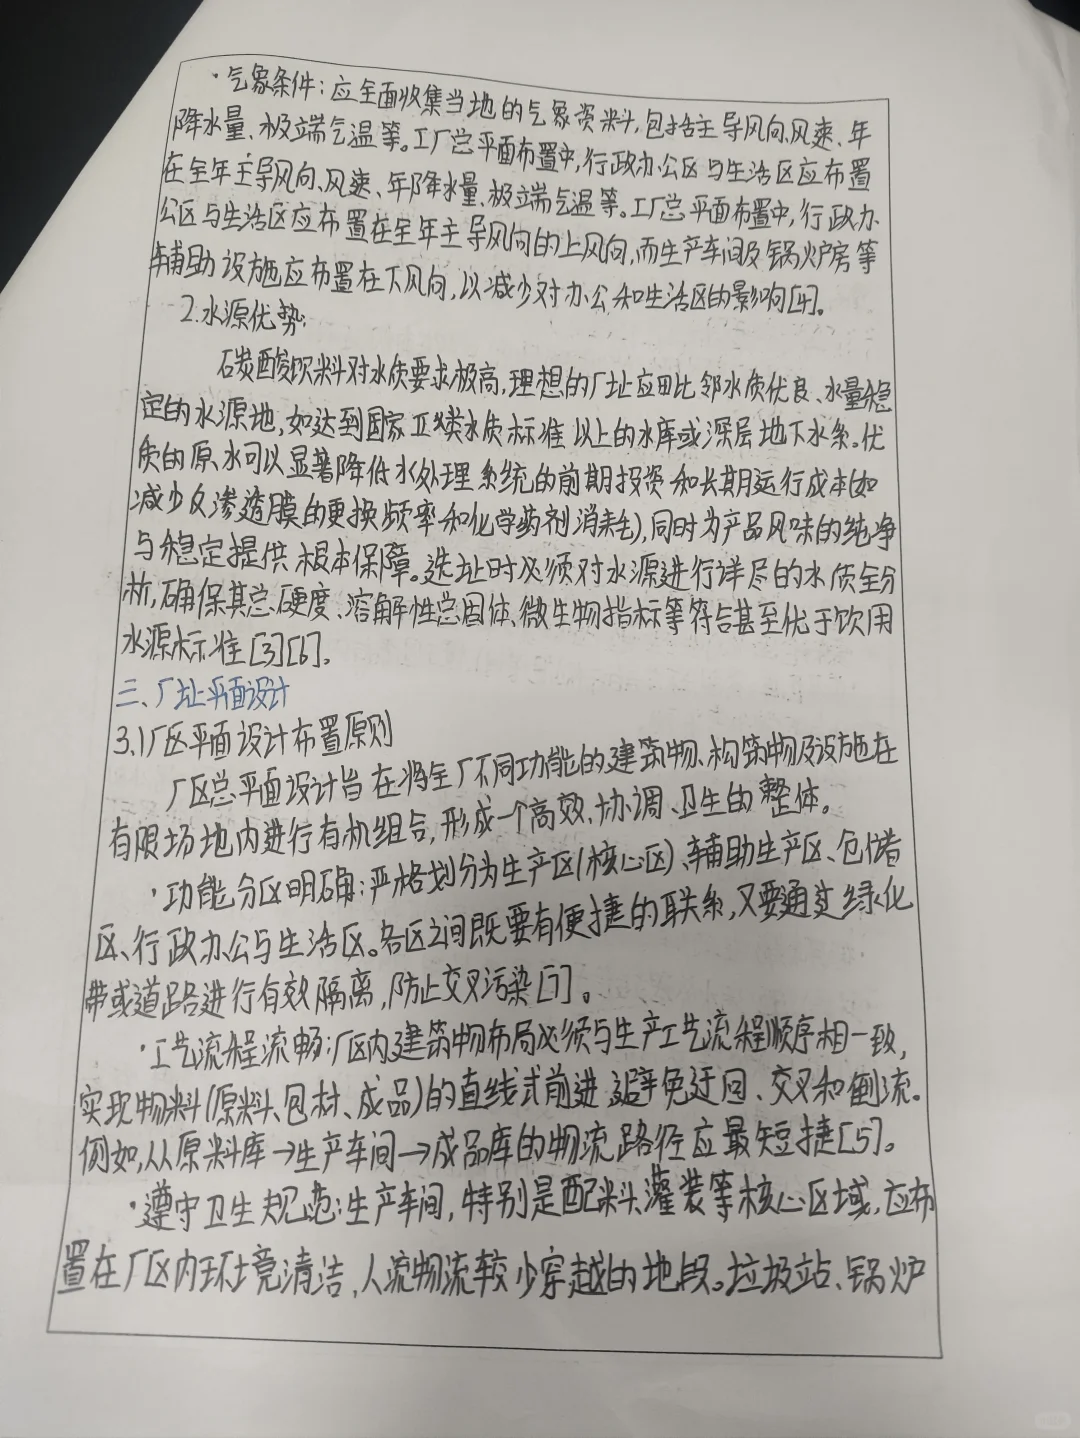 ·气象条件：应全面收集当地的气象资料，包括主导风向、风速、年
降水量、极端气温等。工厂总平面布置中，行政办公区与生活区应布置
在全年主导风向、风速、年降水量、极端气温等。工厂总平面布置中，行政办
公区与生活区应布置在全年主导风向的上风向，而生产车间及锅炉房等
辅助设施应布置在下风向，以减少对办公和生活区的影响[4]。
2.水源优势：
碳酸饮料对水质要求极高，理想的厂址应毗邻水质优良、水量稳
定的水源地，如达到国家Ⅱ类水质标准以上的水库或深层地下水系。优
质的原水可以显著降低水处理系统的前期投资和长期运行成本(如
减少反渗透膜的更换频率和化学药剂消耗)，同时为产品风味的纯净
与稳定提供根本保障。选址时必须对水源进行详尽的水质全分
析，确保其总硬度、溶解性总固体、微生物指标等符合甚至优于饮用
水源标准[3][6]。
三、厂址平面设计
3.1厂区平面设计布置原则
厂区总平面设计旨在将全厂不同功能的建筑物、构筑物及设施在
有限场地内进行有机组合，形成一个高效、协调、卫生的整体。
·功能分区明确：严格划分为生产区(核心区)、辅助生产区、仓储
区、行政办公与生活区。各区之间既要有便捷的联系，又要通过绿化
带或道路进行有效隔离，防止交叉污染[7]。
·工艺流程流畅：厂区内建筑物布局必须与生产工艺流程顺序相一致，
实现物料(原料、包材、成品)的直线式前进，避免迂回、交叉和倒流。
例如，从原料库→生产车间→成品库的物流路径应最短捷[5]。
·遵守卫生规范：生产车间，特别是配料、灌装等核心区域，应布
置在厂区内环境清洁，人流物流较少穿越的地段。垃圾站、锅炉